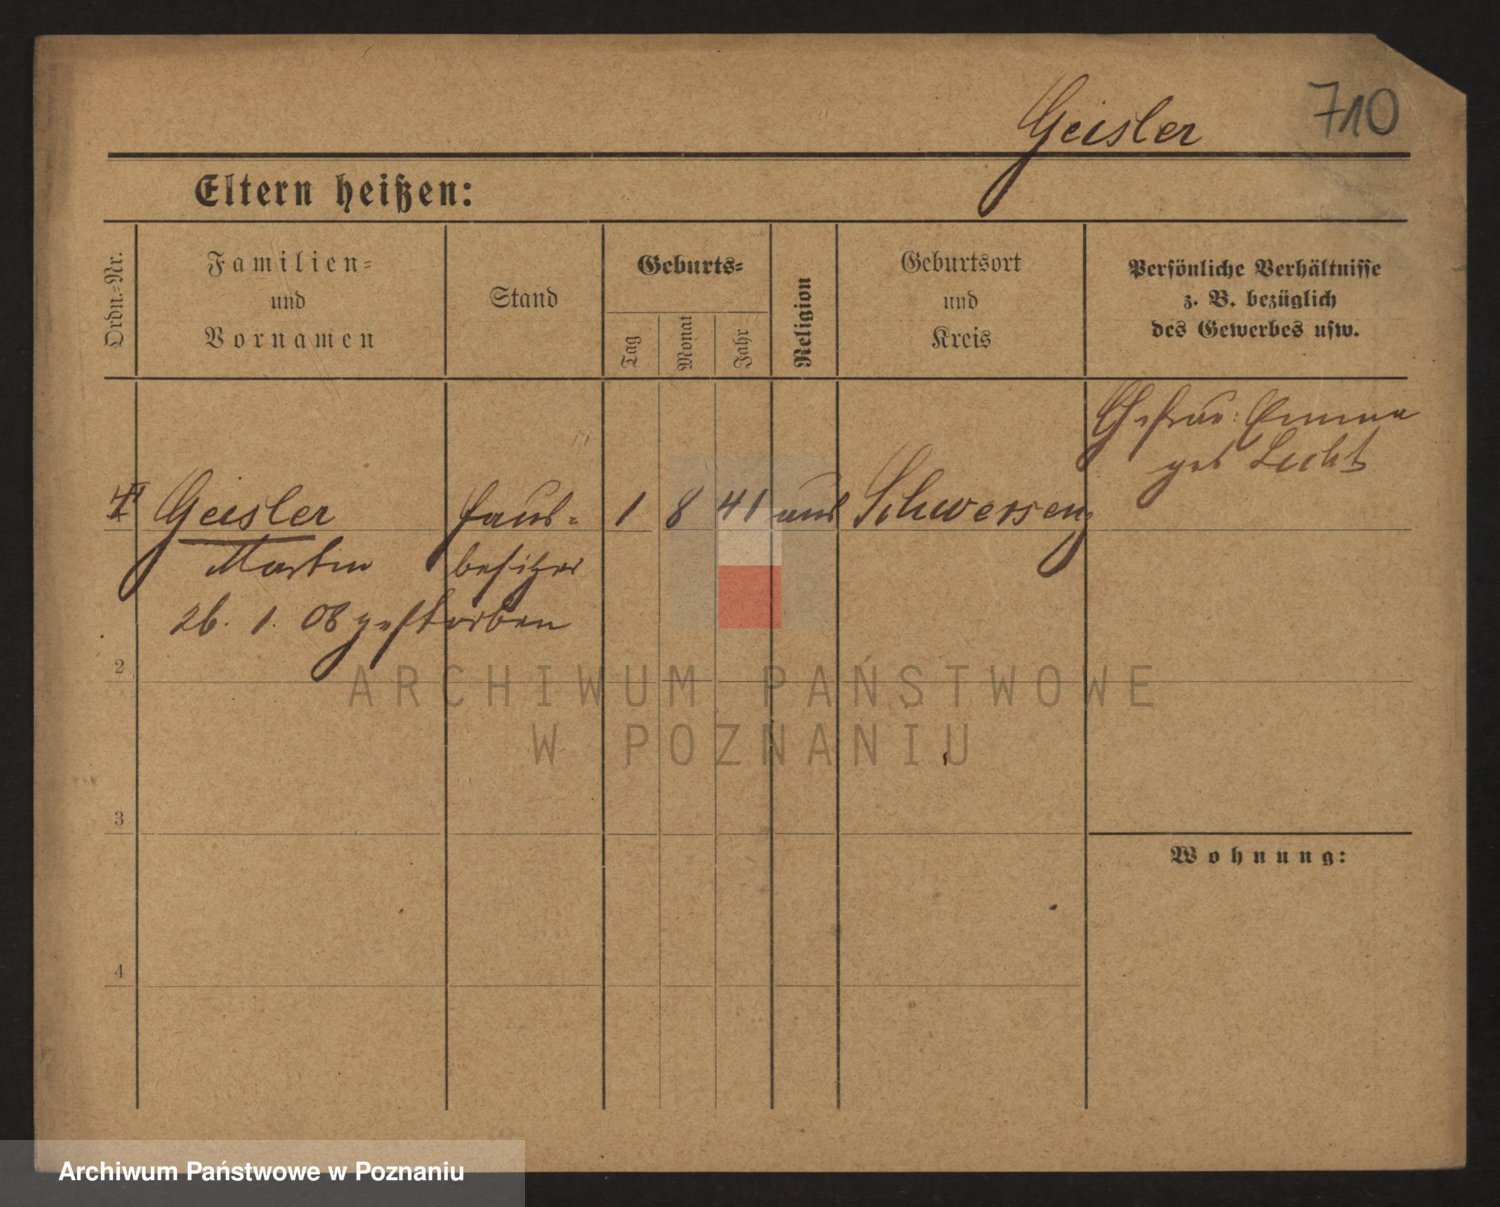 Geisler 710
Eltern heißen:
Ordn.-Nr.
Familien-
und
Vornamen
Stand
Geburts-
Tag
Monat
Jahr
Religion
Geburtsort
und
Kreis
Persönliche Verhältnisse
z. B. bezüglich
des Gewerbes usw.
Ehefrau: Emma
geb Licht
Geisler Haus- 1 8 41 Schwersenz
Martin besitzer
26. 1. 08 gestorben
2
3
4
Wohnung:
ARCHIWUM PAŃSTWOWE
W POZNANIU
Archiwum Państwowe w Poznaniu